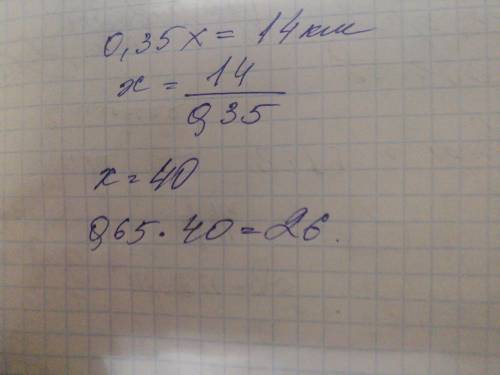 0,35x = 14 км
x = 14/0,35
x = 40
0,65 · 40 = 26.